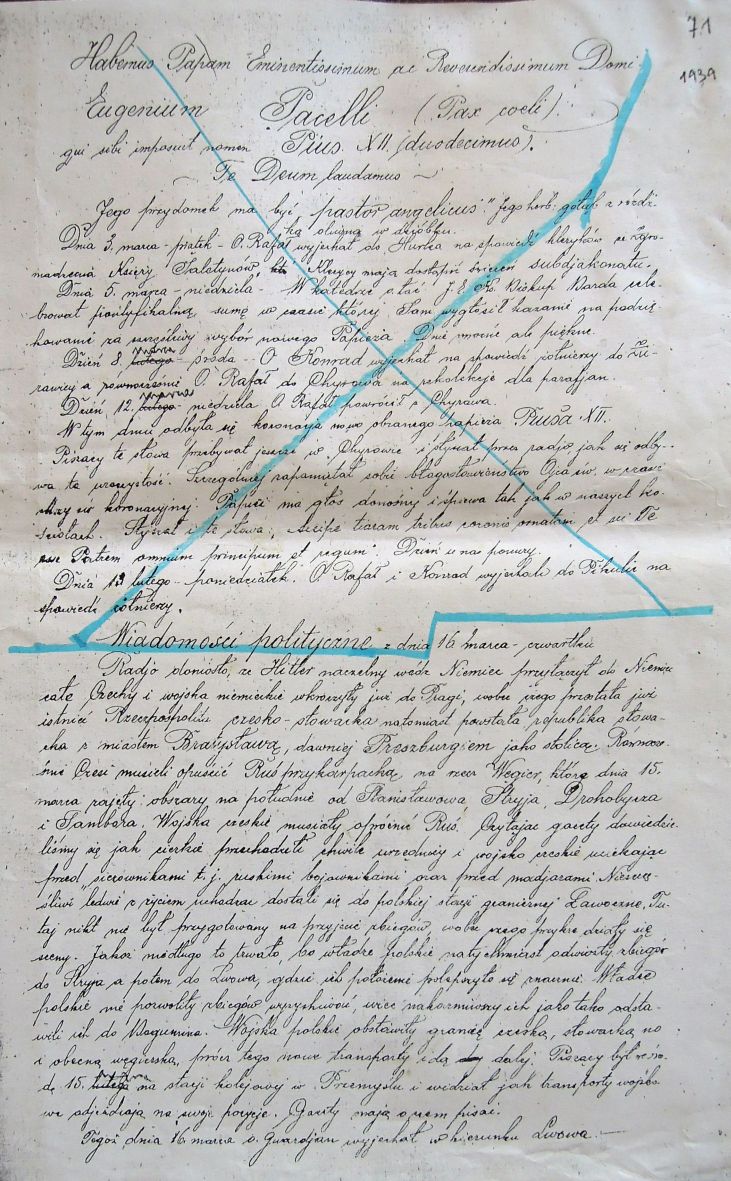 71
1939
Habemus Papam Eminentissimum ac Reverendissimum Domi.
Eugenium Pacelli (Pax coeli)
qui sibi imposuit nomen Pius XII. (duodecimus).
Te Deum laudamus
Jego przydomek ma być "pastor angelicus". Jego herb: gołąb z różdż-
ką oliwną w dzióbku.
Dnia 3. marca - piątek - O. Rafał wyjechał do na spowiedź kleryków ze Zgro-
madzenia Księży Klerycy mają dostąpić święceń subdjakonatu.
Dnia 5. marca - niedziela - W katedrze o. łać. J. E. Ks. Biskup Barda cele-
brował pontyfikalną sumę w czasie której Sam wygłosił kazanie na podzię-
kowanie za szczęśliwy wybór nowego Papieża. Dnie mroźne ale piękne.
Dzień 8. lutego marca - środa - O. Konrad wyjechał na spowiedź żołnierzy do Żu-
rawicy a równocześnie O. Rafał do Chyrowa na rekolekcje dla parafjan.
Dzień 12. lutego marca niedziela. O. Rafał powrócił z Chyrowa.
W tym dniu odbyła się koronacja nowo obranego papieża Piusa XII.
Piszący te słowa przebywał jeszcze w Chyrowie i słyszał przez radjo, jak się odby-
wa ta uroczystość. Szczególniej zapamiętał sobie błogosławieństwo Ojca św. w czasie
mszy św. koronacyjnej. Papież ma głos donośny i śpiewa tak jak w naszych koś-
ciołach. Słyszał i te słowa: "accipe tiaram tribus coronis ornatam et sci Te
esse Patrem omnium principum et regum". Dzień u nas ponury.
Dnia 13 lutego - poniedziałek. O. Rafał i Konrad wyjechali do Pikulic na
spowiedź żołnierzy.
Wiadomości polityczne z dnia 16. marca - czwartku
Radjo doniosło, że Hitler naczelny wódz Niemiec przyłączył do Niemiec
całe Czechy i wojska niemieckie wkroczyły już do Pragi, wobec czego przestała już
istnieć Rzeczpospolita czesko-słowacka natomiast powstała republika słowa-
cka z miastem Bratysławą, dawniej Preszburgiem jako stolicą. Równocze-
śnie Czesi musieli opuścić Ruś przykarpacką na rzecz Węgier, które dnia 15.
marca zajęły obszary na południe od Stanisławowa, Stryja, Drohobycza
i Sambora. Wojska czeskie musiały opróżnić Ruś. Czytając gazety dowiedzie-
liśmy się jak ciężkie przechodzili chwile urzędnicy i wojsko czeskie uciekając
przed "siczownikami t. j. ruskimi bojownikami oraz przed madjarami. Nieszczę-
śliwi ledwie z życiem uchodząc dostali się do polskiej stacji granicznej Ławoczne. Tu-
taj nikt nie był przygotowany na przyjęcie zbiegów, wobec czego przykre działy się
sceny. Jakoż niedługo to trwało, bo władze polskie natychmiast odwiozły zbiegów
do Stryja a potem do Lwowa, gdzie ich położenie polepszyło się znacznie. Władze
polskie nie pozwoliły zbiegów więc nakarmiwszy ich jako tako odsta-
wili ich do Wojska polskie obstawiły granicę czeską, słowacką no
i obecną węgierską, prócz tego nowe transporty idą dalej. Piszący był we śro-
dę 15. lutego marca na stacji kolejowej w Przemyślu i widział jak transporty wojsko-
we odjeżdżają na swoje pozycje. Gazety mają o czem pisać.
Tegoż dnia 16. marca o. Gwardjan wyjechał w kierunku Lwowa.